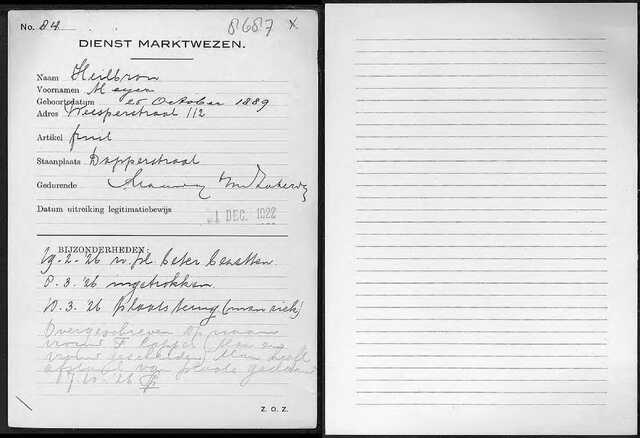 No. 84
8687 X
DIENST MARKTWEZEN.
Naam Heilbron
Voornamen Meyer
Geboortedatum 25 October 1889
Adres Weesperstraat 112
Artikel fruit
Staanplaats Dapperstraat
Gedurende Maandag t/m Zaterdag
Datum uitreiking legitimatiebewijs
1 DEC. 1922
BIJZONDERHEDEN:
19-2-'26 Beter
8.3.'26 ingetrokken
10.3.'26 plaats terug (man ziek)
Overgeschreven op naam
vrouw F. (Man en
vrouw gescheiden) Man heeft
afstand van plaats gedaan
'26
Z. O. Z.